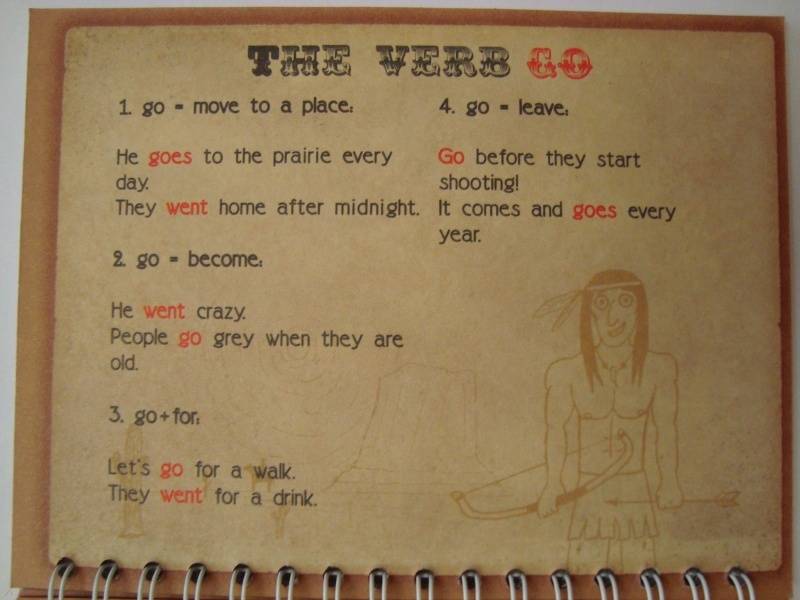 THE VERB GO
1. go = move to a place:
He goes to the prairie every
day.
They went home after midnight.
2. go = become:
He went crazy.
People go grey when they are
old.
3. go+for:
Let's go for a walk.
They went for a drink.
4. go = leave:
Go before they start
shooting!
It comes and goes every
year.